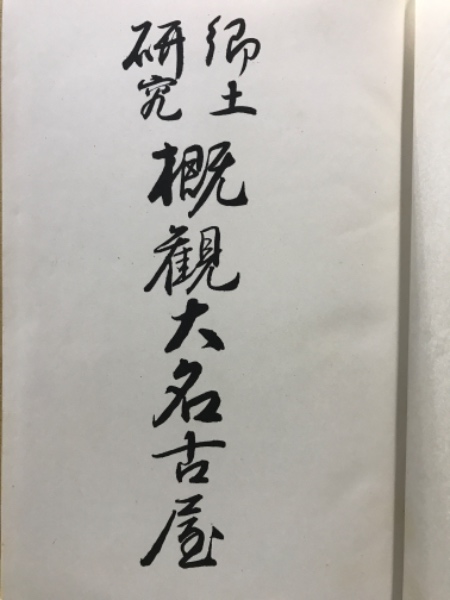 郷土
研究
概観大名古屋